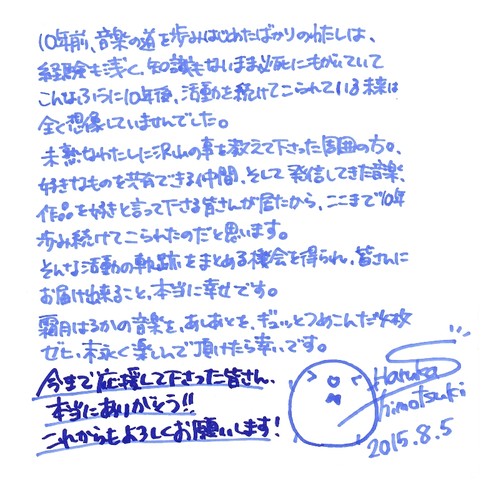 10年前、音楽の道を歩みはじめたばかりのわたしは、
経験も浅く、知識もないまま必死にもがいていて
こんなふうに10年後、活動を続けてこられている未来は
全く想像していませんでした。
未熟なわたしに沢山の事を教えて下さった周囲の方々、
好きなものを共有できる仲間、そして発信してきた音楽、
作品を好きと言って下さる皆さんが居たから、ここまで10年
歩み続けてこられたのだと思います。
そんな活動の軌跡をまとめる機会を得られ、皆さんに
お届け出来ること、本当に幸せです。
霜月はるかの音楽を、あしあとを、ギュッとつめこんだ枚
ゼヒ、末永く楽しんで頂けたら幸いです。
今まで応援して下さった皆さん、
本当にありがとう!!
これからもよろしくお願いします!
Haruka
Shimotsuki
2015.8.5